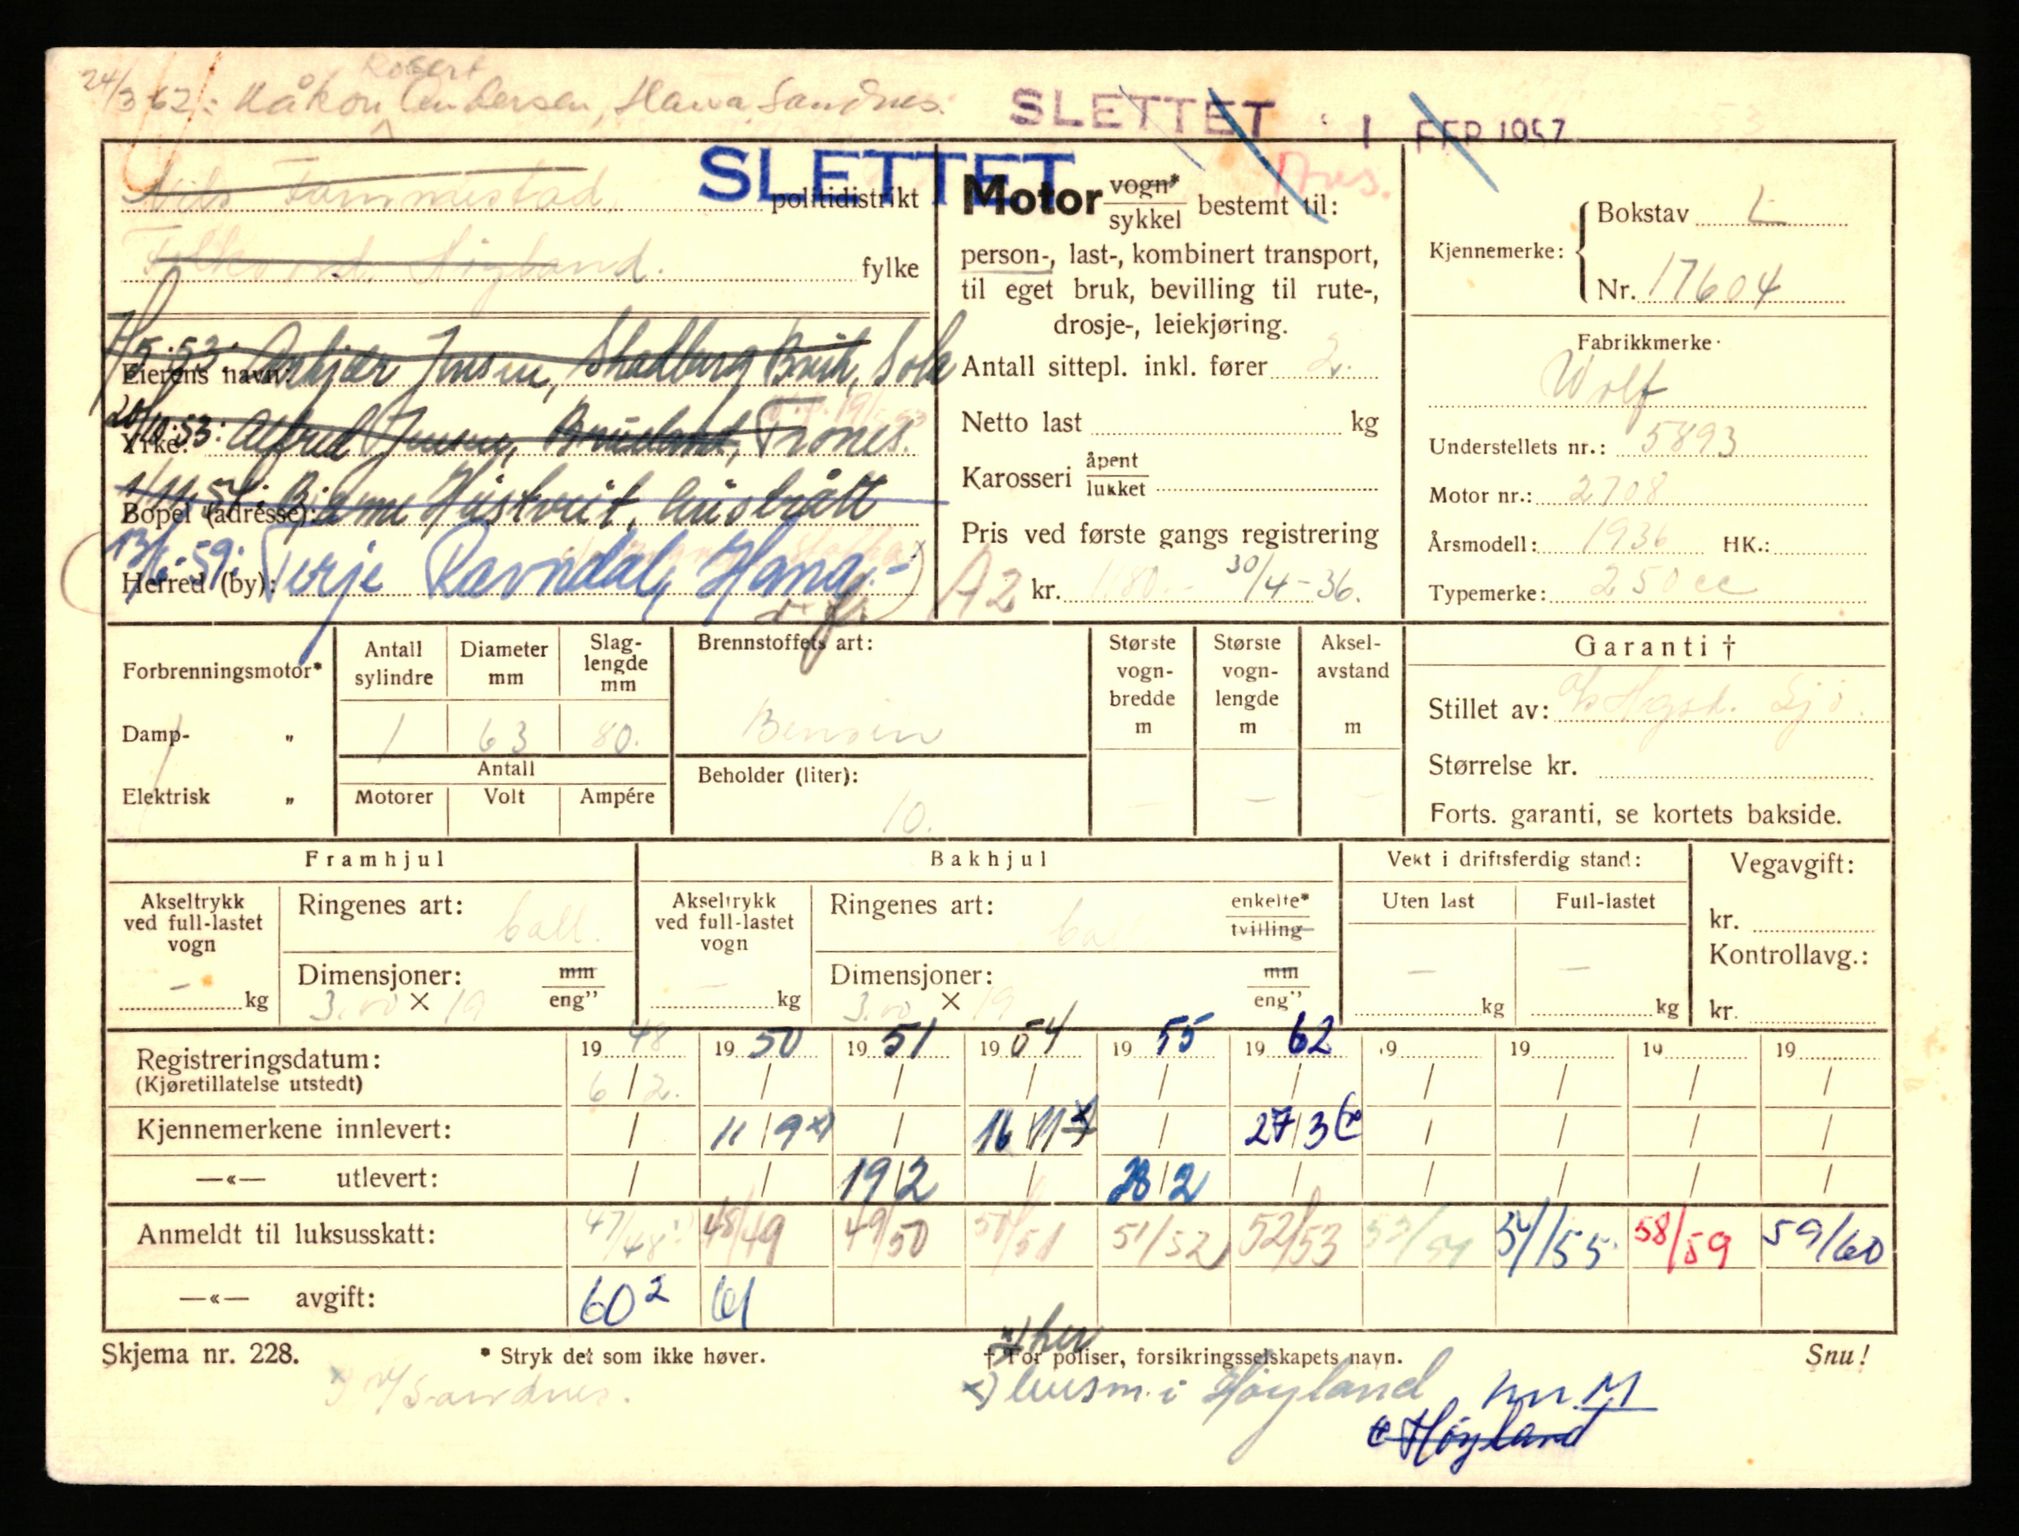 24/3-62: Håkon Robert Andersen, Hana Sandnes.
SLETTET 1 FEB 1957
SLETTET
Nils politidistrikt
Høyland. fylke
7/5-53: Jensen, Sola
Eierens navn:
20/10-53: Alfred Jensen, Trones.
Yrke:
1/11-54: Bjarne
Bopel (adresse):
13/6-59: Terje Ravndal, Hana
Herred (by):
Motor vogn* sykkel bestemt til:
person-, last-, kombinert transport,
til eget bruk, bevilling til rute-,
drosje-, leiekjøring.
Antall sittepl. inkl. fører 2.
Netto last kg
Karosseri åpent lukket
Pris ved første gangs registrering
A2 kr. 1180.- 30/4-36.
Kjennemerke: Bokstav L
Nr. 17604
Fabrikkmerke
Wolf
Understellets nr.: 5893
Motor nr.: 2708
Årsmodell: 1936 HK.:
Typemerke: 250 cc
Forbrenningsmotor*
Damp- „
Elektrisk „
Antall sylindre Diameter mm Slaglengde mm
1 63 80.
Antall
Motorer Volt Ampére
Brennstoffets art:
Bensin
Beholder (liter):
10.
Største vognbredde m Største vognlengde m Akselavstand m
— — —
Garanti †
Stillet av:
Størrelse kr.
Forts. garanti, se kortets bakside.
Framhjul
Akseltrykk ved full-lastet vogn
— kg
Ringenes art: ball.
Dimensjoner: mm
3.00 × 19 eng”
Bakhjul
Akseltrykk ved full-lastet vogn
— kg
Ringenes art: ball enkelte* tvilling
Dimensjoner: mm
3.00 × 19 eng”
Vekt i driftsferdig stand:
Uten last Full-lastet
— —
kg kg
Vegavgift:
kr.
Kontrollavg.:
kr.
Registreringsdatum: 19 48 19 50 19 51 19 54 19 55 19 62 19 19 19 19
(Kjøretillatelse utstedt) 6/2. / / / / / / / / /
Kjennemerkene innlevert: / 11/9 x) / 16/11 / 27/3 / / / /
—«— utlevert: / / 19/2 / 28/2 / / / / /
Anmeldt til luksusskatt: 47/48 48/49 49/50 50/51 51/52 52/53 53/54 54/55 58/59 59/60
—«— avgift: 60 2 61
Skjema nr. 228.
* Stryk det som ikke høver.
her
† For poliser, forsikringsselskapets navn.
Snu!
Sandnes.
x) lensm. i Høyland
M
Høyland